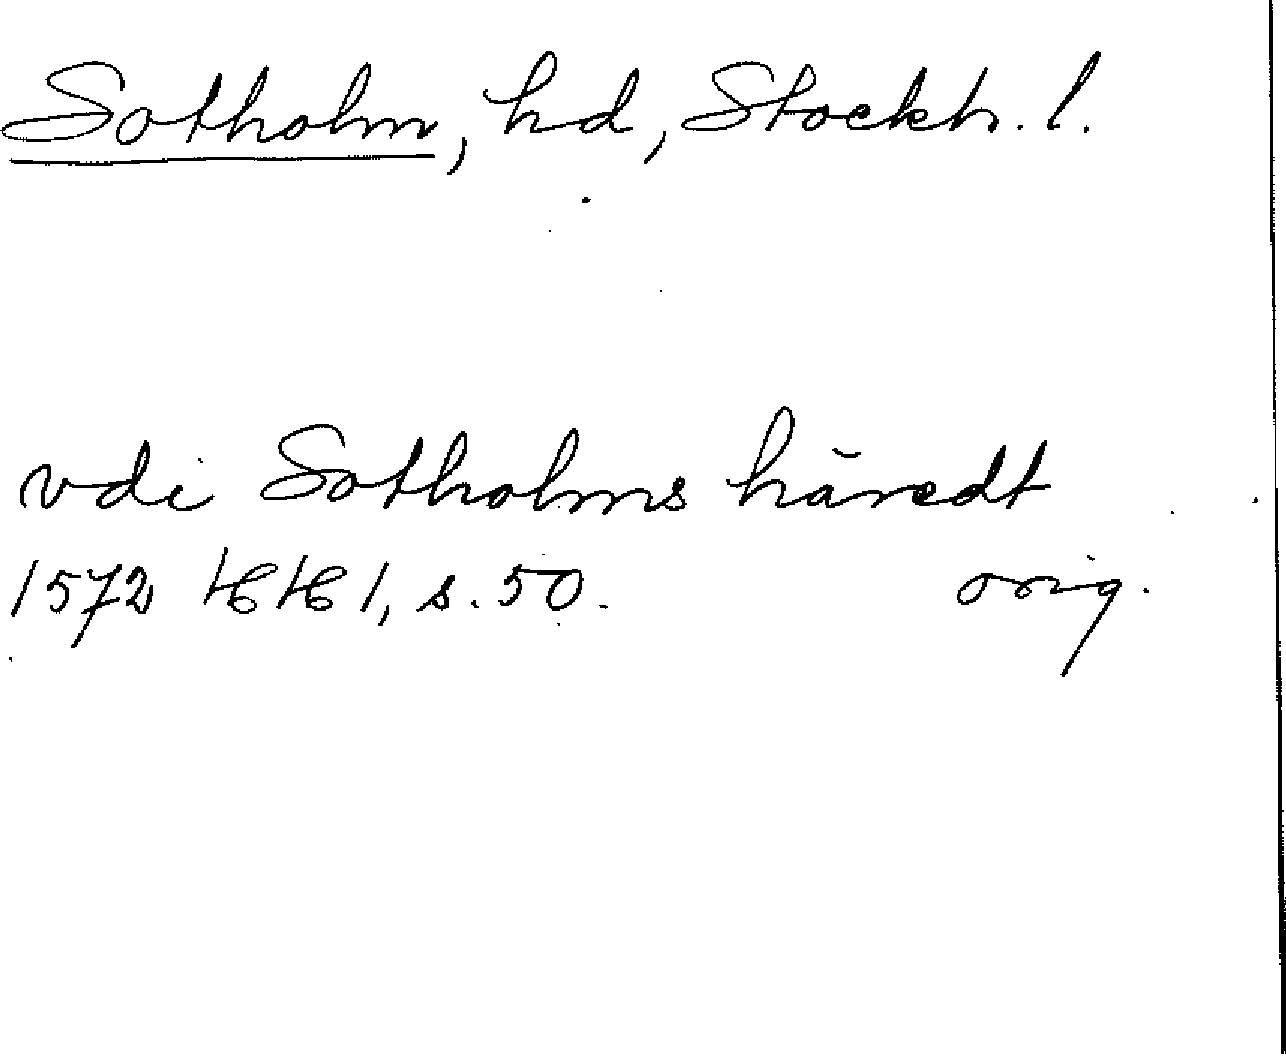 Sotholm, hd, Stockh. l.
vdi Sotholms häredt
1572 HH 1, s. 50. orig.